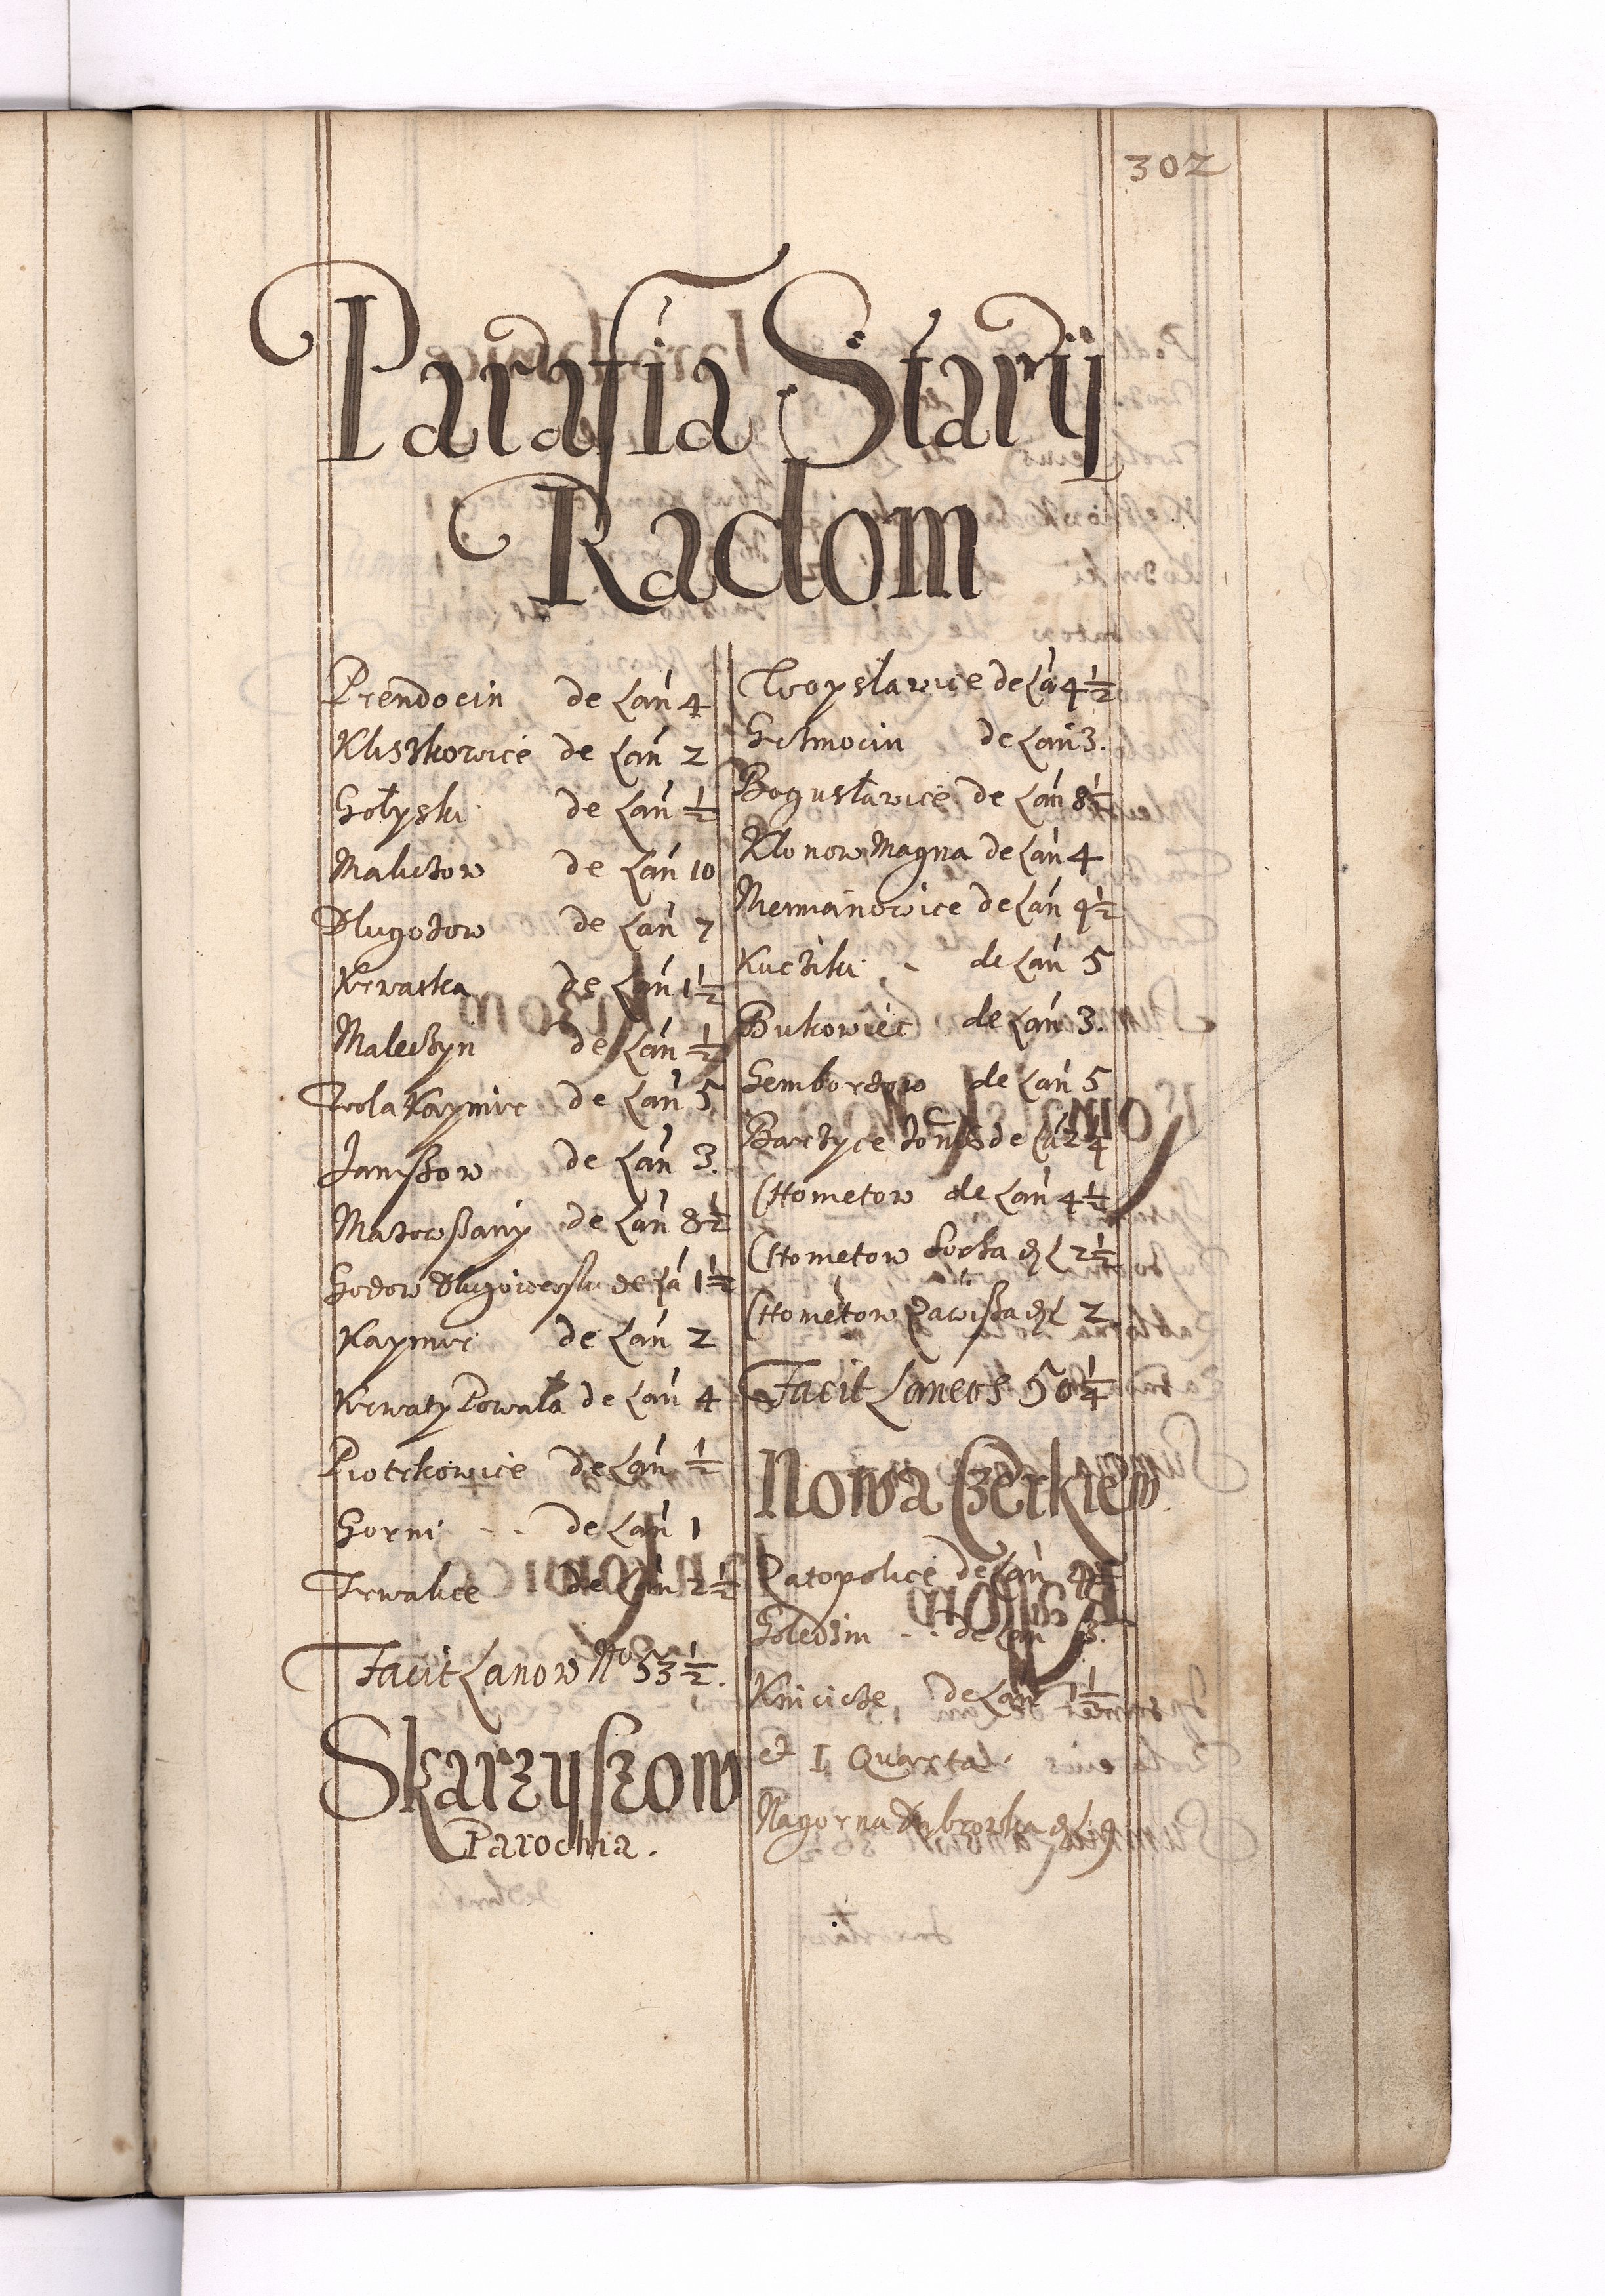 302
Parafia Starÿ
Radom
Prendocin de Lan 4
Kliszkowice de Lan 2
Gołyski de Lan ½
Maliczow de Lan 10
Dlugoiow de Lan 7
Krwaska de Lan 1½
Maleczyn de Lan ½
Wola Kaymir de Lan 5
Janiszow de Lan 3.
Matowszany de Lan 8½
Godow de La 1½
Kaymir de Lan 2
Krwaty Powała de Lan 4
Piotrkowice de Lan ½
Gorni - - de Lan 1
Trwalice de Lan 2½
Facit Lanow No 53½.
Skarzyszow
Parochia.
Woysławice de La 4½
Gczmocin de Lan 3.
Bogusławice de Lan 8½
Klonow Magna de Lan 4
Memianowice de Lan 4½
Kucziki - de Lan 5
Bukowiec de Lan 3.
Gemborzow de Lan 5
Barczyce de La 2¼
Chometow de Lan 4½
Chometow Socha 2½
Chometow Zawisza 2
Facit Laneos 50¼
Nowa Czerkiew
Ratopolice de Lan
Goledzin - - de Lan 3.
Kniczice de Lan 1½
et I Quarta.
Nagorna Dąbrowka